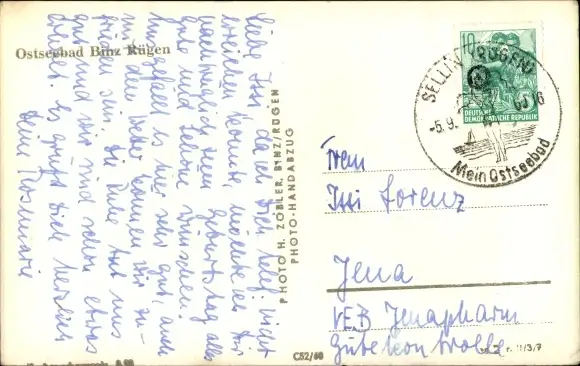 Ostseebad Binz Rügen
Liebe Issi, da ich Dich telef. nicht
erreichen konnte, möchte ich Dir
nachträglich zum Geburtstag alles
Gute und Schöne wünschen.
Uns gefällt es hier sehr gut, auch
mit dem Wetter können wir zu-
frieden sein. Die Ruhe tut uns
gut und wir sind schon etwas
erholt. Es grüßt Dich herzlich
Deine Rosemarie
PHOTO H. ZOBLER, BINZ/RÜGEN
PHOTO-HANDABZUG
10
DEUTSCHE
DEMOKRATISCHE REPUBLIK
SELLIN (RÜGEN)
-5.9.
Mein Ostseebad
Frau
Issi Lorenz
Jena
VEB Jenapharm
Gütekontrolle
C52/60
II/3/7